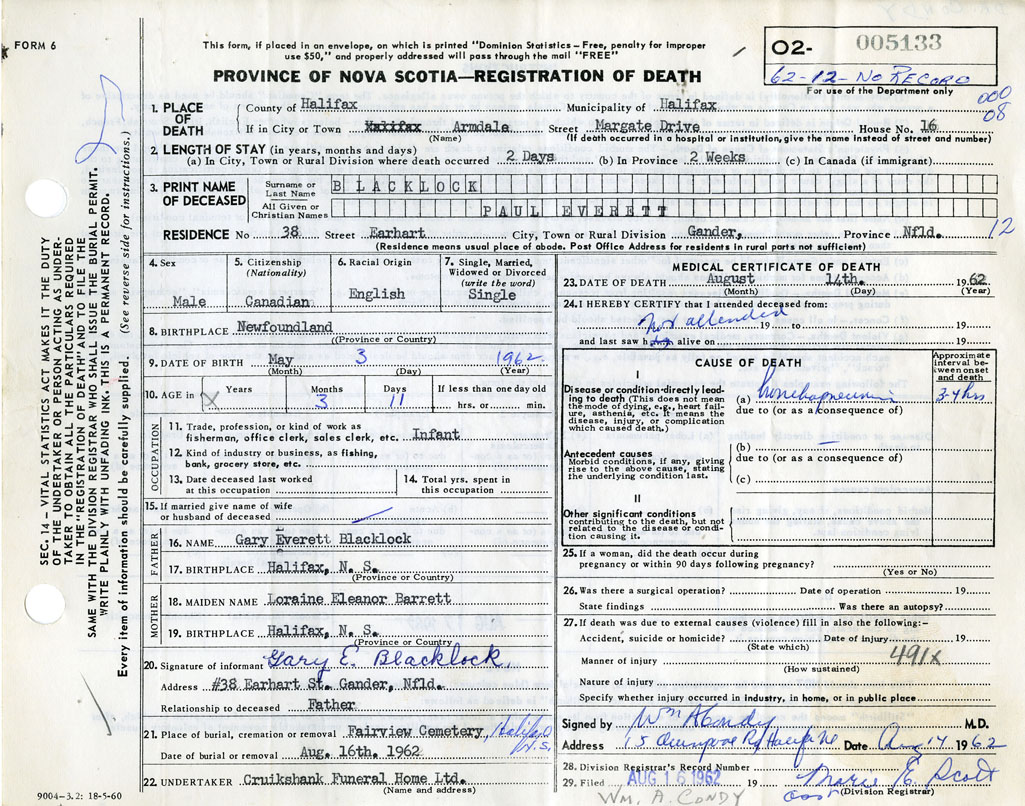 FORM 6
This form, if placed in an envelope, on which is printed "Dominion Statistics – Free, penalty for improper
use $50," and properly addressed will pass through the mail "FREE"
PROVINCE OF NOVA SCOTIA—REGISTRATION OF DEATH
O2- 005133
62-12-NO RECORD
For use of the Department only
000
08
SEC. 14 – VITAL STATISTICS ACT MAKES IT THE DUTY
OF THE UNDERTAKER OR PERSON ACTING AS UNDER-
TAKER TO OBTAIN ALL THE PARTICULARS REQUIRED
IN THE "REGISTRATION OF DEATH" AND TO FILE THE
SAME WITH THE DIVISION REGISTRAR WHO SHALL ISSUE THE BURIAL PERMIT.
WRITE PLAINLY WITH UNFADING INK. THIS IS A PERMANENT RECORD.
Every item of information should be carefully supplied. (See reverse side for instructions.)
1. PLACE OF DEATH
County of Halifax Municipality of Halifax
If in City or Town Halifax Armdale Street Margate Drive House No. 16
(Name) (If death occurred in a hospital or institution, give the name instead of street and number)
2. LENGTH OF STAY (in years, months and days)
(a) In City, Town or Rural Division where death occurred 2 Days (b) In Province 2 Weeks (c) In Canada (if immigrant)
3. PRINT NAME OF DECEASED
Surname or Last Name BLACKLOCK
All Given or Christian Names PAUL EVERETT
RESIDENCE No 38 Street Earhart City, Town or Rural Division Gander, Province Nfld.
12
(Residence means usual place of abode. Post Office Address for residents in rural parts not sufficient)
4. Sex Male
5. Citizenship (Nationality) Canadian
6. Racial Origin English
7. Single, Married, Widowed or Divorced (write the word) Single
8. BIRTHPLACE Newfoundland
(Province or Country)
9. DATE OF BIRTH May 3 1962
(Month) (Day) (Year)
10. AGE in Years X Months 3 Days 11 If less than one day old
hrs. or min.
OCCUPATION
11. Trade, profession, or kind of work as
fisherman, office clerk, sales clerk, etc. Infant
12. Kind of industry or business, as fishing,
bank, grocery store, etc.
13. Date deceased last worked
at this occupation
14. Total yrs. spent in
this occupation
15. If married give name of wife
or husband of deceased
FATHER
16. NAME Gary Everett Blacklock
17. BIRTHPLACE Halifax, N. S.
(Province or Country)
MOTHER
18. MAIDEN NAME Loraine Eleanor Barrett
19. BIRTHPLACE Halifax, N. S.
(Province or Country)
20. Signature of informant Gary E. Blacklock.
Address #38 Earhart St. Gander, Nfld.
Relationship to deceased Father
21. Place of burial, cremation or removal Fairview Cemetery, Halifax N.S.
Date of burial or removal Aug. 16th. 1962
22. UNDERTAKER Cruikshank Funeral Home Ltd.
(Name and address)
9004-3.2: 18-5-60
MEDICAL CERTIFICATE OF DEATH
23. DATE OF DEATH August 14th. 1962
(Month) (Day) (Year)
24. I HEREBY CERTIFY that I attended deceased from:
Not attended 19 to 19
and last saw h alive on 19
CAUSE OF DEATH
Approximate interval between onset and death
I
Disease or condition directly leading
to death (This does not mean
the mode of dying, e.g., heart failure,
asthenia, etc. It means the
disease, injury, or complication
which caused death.)
(a) bronchopneumonia 3-4 hrs
due to (or as a consequence of
Antecedent causes
Morbid conditions, if any, giving
rise to the above cause, stating
the underlying condition last.
(b)
due to (or as a consequence of)
(c)
II
Other significant conditions
contributing to the death, but not
related to the disease or condition
causing it.
25. If a woman, did the death occur during
pregnancy or within 90 days following pregnancy?
(Yes or No)
26. Was there a surgical operation? Date of operation 19
State findings Was there an autopsy?
27. If death was due to external causes (violence) fill in also the following:-
Accident, suicide or homicide? Date of injury 19
(State which)
491x
Manner of injury
(How sustained)
Nature of injury
Specify whether injury occurred in industry, in home, or in public place
Signed by Wm A Condy M.D.
Address 15 Quinpool Rd Halifax NS Date Aug 14 1962
28. Division Registrar's Record Number
29. Filed AUG 16 1962 19 Marie E. Scott
(Division Registrar)
WM. A. CONDY